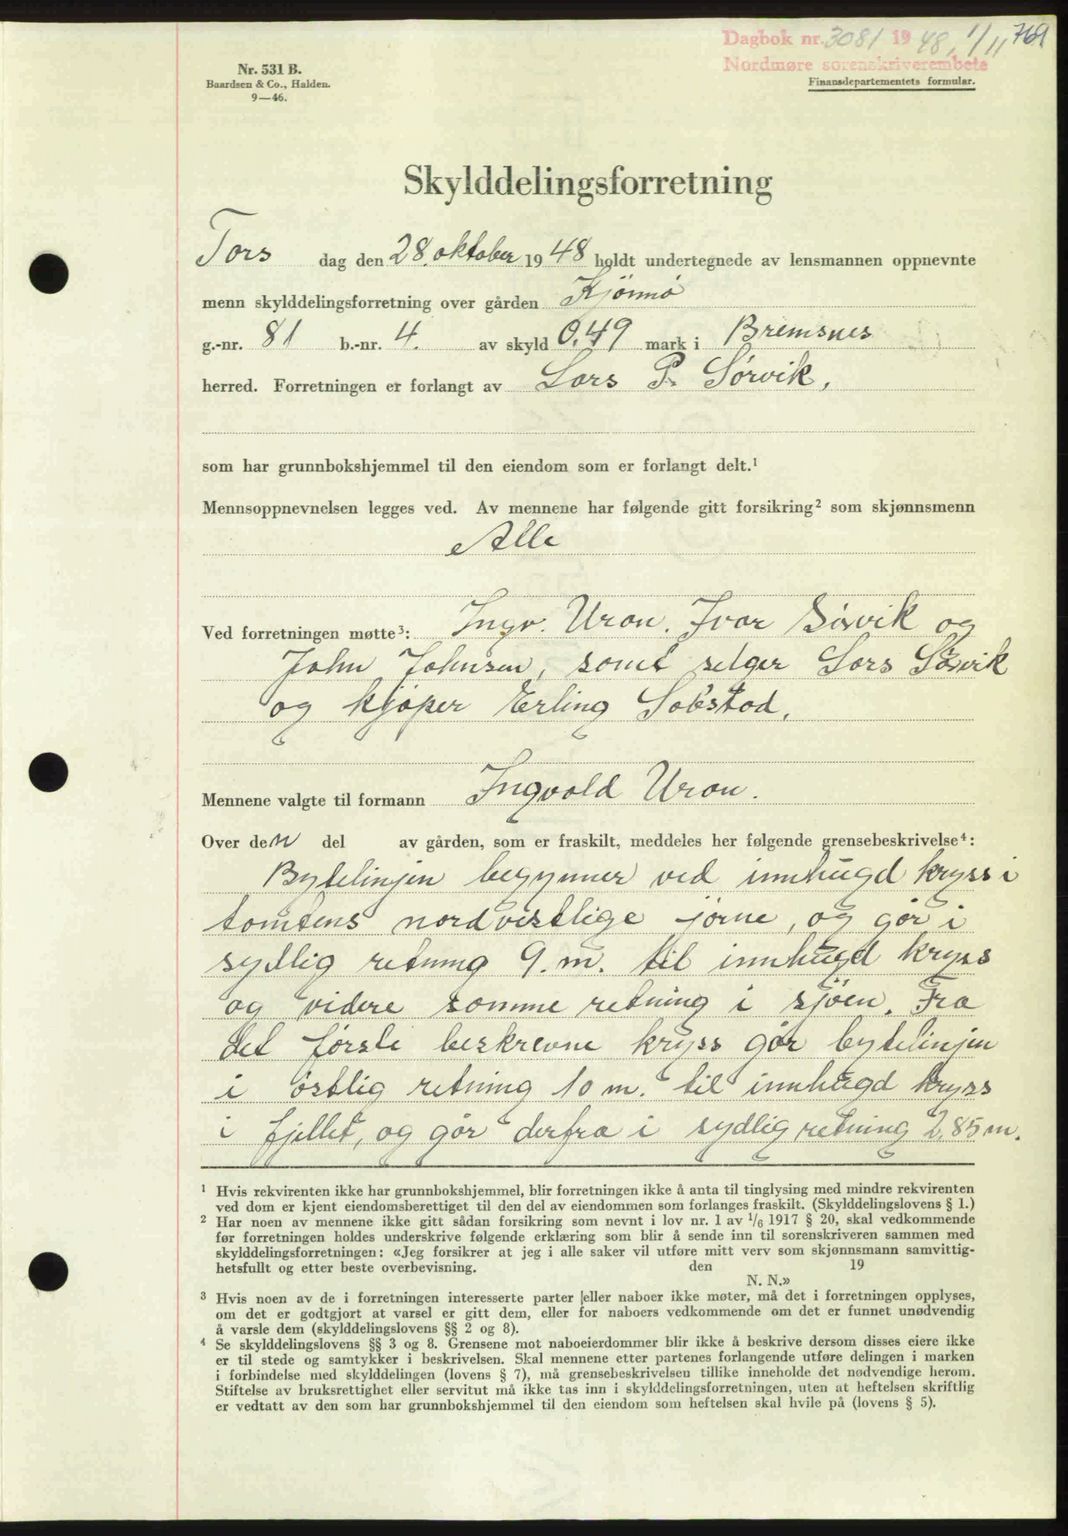 Dagbok nr. 3081 1948, 1/11 769
Nordmøre sorenskriverembete
Nr. 531 B.
Baardsen & Co., Halden.
9—46.
Finansdepartementets formular.
Skylddelingsforretning
Tors dag den 28. oktober 1948 holdt undertegnede av lensmannen oppnevnte
menn skylddelingsforretning over gården Kjönnö
g.-nr. 81 b.-nr. 4. av skyld 0.49 mark i Bremsnes
herred. Forretningen er forlangt av Lars P. Sørvik,
som har grunnbokshjemmel til den eiendom som er forlangt delt.¹
Mennsoppnevnelsen legges ved. Av mennene har følgende gitt forsikring² som skjønnsmenn
Alle
Ved forretningen møtte³: Ingv. Uran. Ivar Sörvik og
John Johnsen, samt selger Lars Sørvik
og kjöper Erling Solstad.
Mennene valgte til formann Ingvald Uran.
Over den del av gården, som er fraskilt, meddeles her følgende grensebeskrivelse⁴:
Bytelinjen begynner ved innhugd kryss i
tomtens nordvestlige jörne, og går i
sydlig retning 9.m. til innhugd kryss
og videre samme retning i sjöen. Fra
det første beskrevne kryss går bytelinjen
i östlig retning 10 m. til innhugd kryss
i fjellet, og går derfra i sydlig retning 2,85m.
¹ Hvis rekvirenten ikke har grunnbokshjemmel, blir forretningen ikke å anta til tinglysing med mindre rekvirenten
ved dom er kjent eiendomsberettiget til den del av eiendommen som forlanges fraskilt. (Skylddelingslovens § 1.)
² Har noen av mennene ikke gitt sådan forsikring som nevnt i lov nr. 1 av 1/6 1917 § 20, skal vedkommende
før forretningen holdes underskrive følgende erklæring som blir å sende inn til sorenskriveren sammen med
skylddelingsforretningen: «Jeg forsikrer at jeg i alle saker vil utføre mitt verv som skjønnsmann samvittig-
hetsfullt og etter beste overbevisning. den 19
N. N.»
³ Hvis noen av de i forretningen interesserte parter eller naboer ikke møter, må det i forretningen opplyses,
om det er godtgjort at varsel er gitt dem, eller for naboers vedkommende om det er funnet unødvendig
å varsle dem (skylddelingslovens §§ 2 og 8).
⁴ Se skylddelingslovens §§ 3 og 8. Grensene mot naboeierdommer blir ikke å beskrive dersom disses eiere ikke
er til stede og samtykker i beskrivelsen. Skal mennene etter partenes forlangende utføre delingen i marken
i forbindelse med skylddelingen (lovens § 7), må grensebeskrivelsen tillike inneholde det nødvendige herom.
Stiftelse av bruksrettighet eller servitut må ikke tas inn i skylddelingsforretningen, uten at heftelsen skriftlig
er vedtatt av den som har grunnbokshjemmel til den eiendom som heftelsen skal hvile på (lovens § 5).